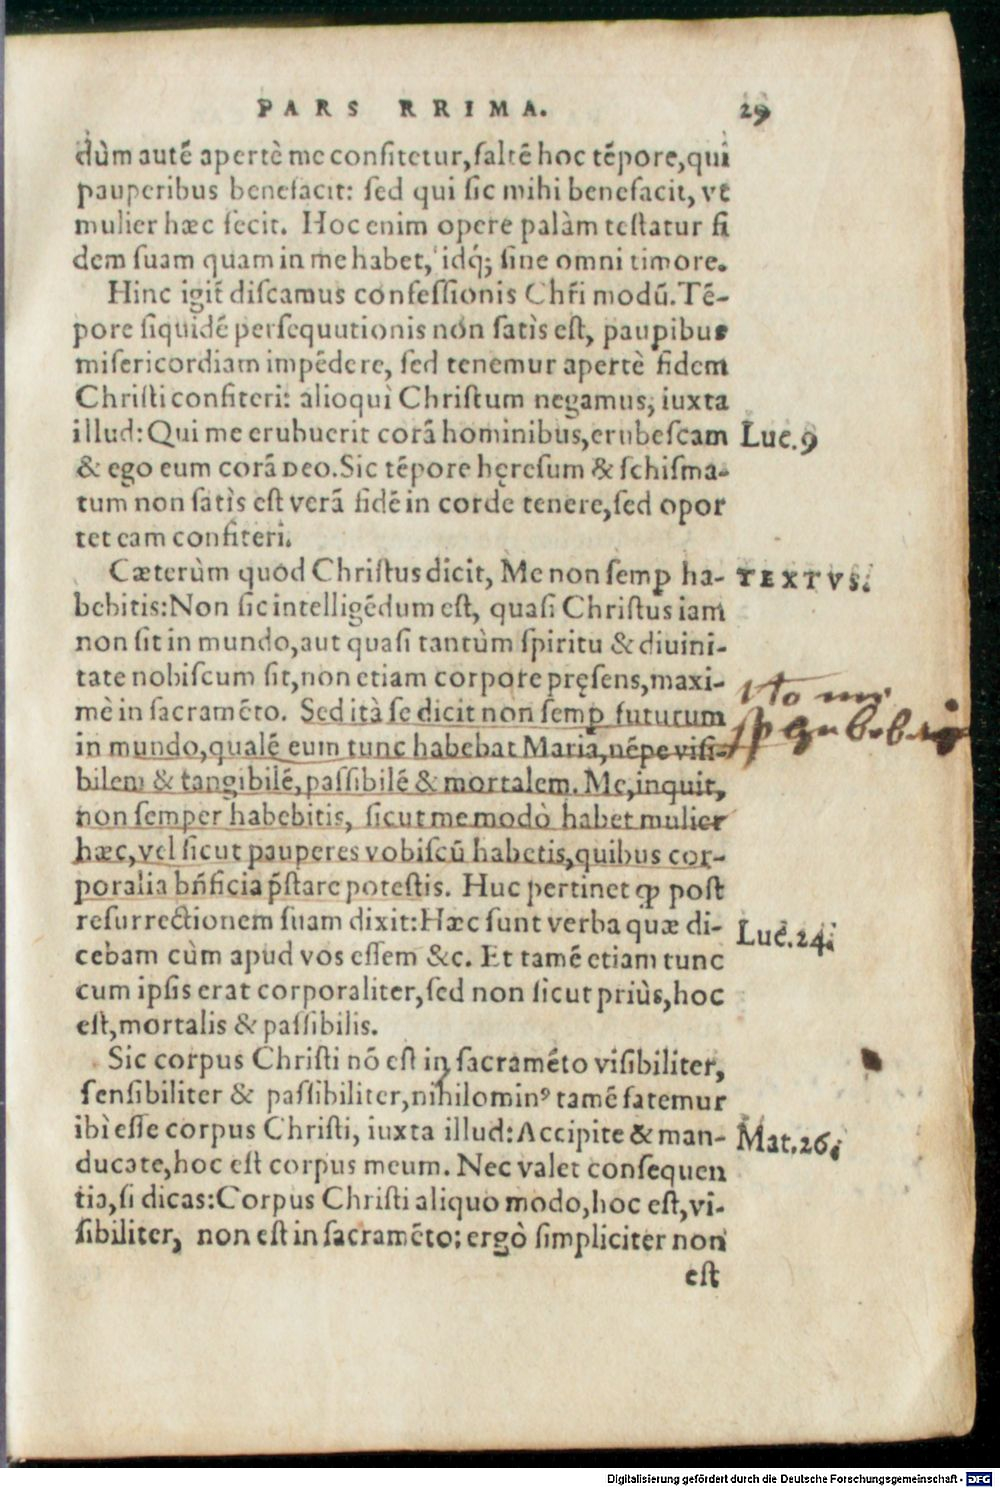 PARS RRIMA. 29
dùm autē apertè me confitetur, saltē hoc tēpore, qui
pauperibus benefacit: sed qui sic mihi benefacit, vt
mulier hæc fecit. Hoc enim opere palàm testatur fi
dem suam quam in me habet, idq́; sine omni timore.
Hinc igit̃ discamus confessionis Chr̃i modū. Tē-
pore siquidē persequutionis non satìs est, paupibus
misericordiam impēdere, sed tenemur apertè fidem
Christi confiteri: alioqui Christum negamus, iuxta
illud: Qui me erubuerit corā hominibus, erubescam Luc. 9
& ego eum corā DEO. Sic tēpore hęresum & schisma-
tum non satìs est verā fidē in corde tenere, sed opor
tet eam confiteri.
Cæterùm quòd Christus dicit, Me non semp ha- TEXTVS.
bebitis: Non sic intelligēdum est, quasi Christus iam
non sit in mundo, aut quasi tantùm spiritu & diuini-
tate nobiscum sit, non etiam corpore pręsens, maxi-
mè in sacramēto. Sed ità se dicit non semꝑ futurum
in mundo, qualē eum tunc habebat Maria, nēpe visi-
bilem & tangibilē, passibilē & mortalem. Me, inquit,
non semper habebitis, sicut me modò habet mulier
hæc, vel sicut pauperes vobiscū habetis, quibus cor-
poralia bñficia p̃stare potestis. Huc pertinet ꝙ post
resurrectionem suam dixit: Hæc sunt verba quæ di- Luc. 24.
cebam cùm apud vos essem &c. Et tamē etiam tunc
cum ipsis erat corporaliter, sed non sicut priùs, hoc
est, mortalis & passibilis.
Sic corpus Christi nō est in sacramēto visibiliter,
sensibiliter & passibiliter, nihilominꝰ tamē fatemur
ibì esse corpus Christi, iuxta illud: Accipite & man- Mat. 26.
ducate, hoc est corpus meum. Nec valet consequen
tia, si dicas: Corpus Christi aliquo modo, hoc est, vi-
sibiliter, non est in sacramēto: ergò simpliciter non
est
Digitalisierung gefördert durch die Deutsche Forschungsgemeinschaft - DFG